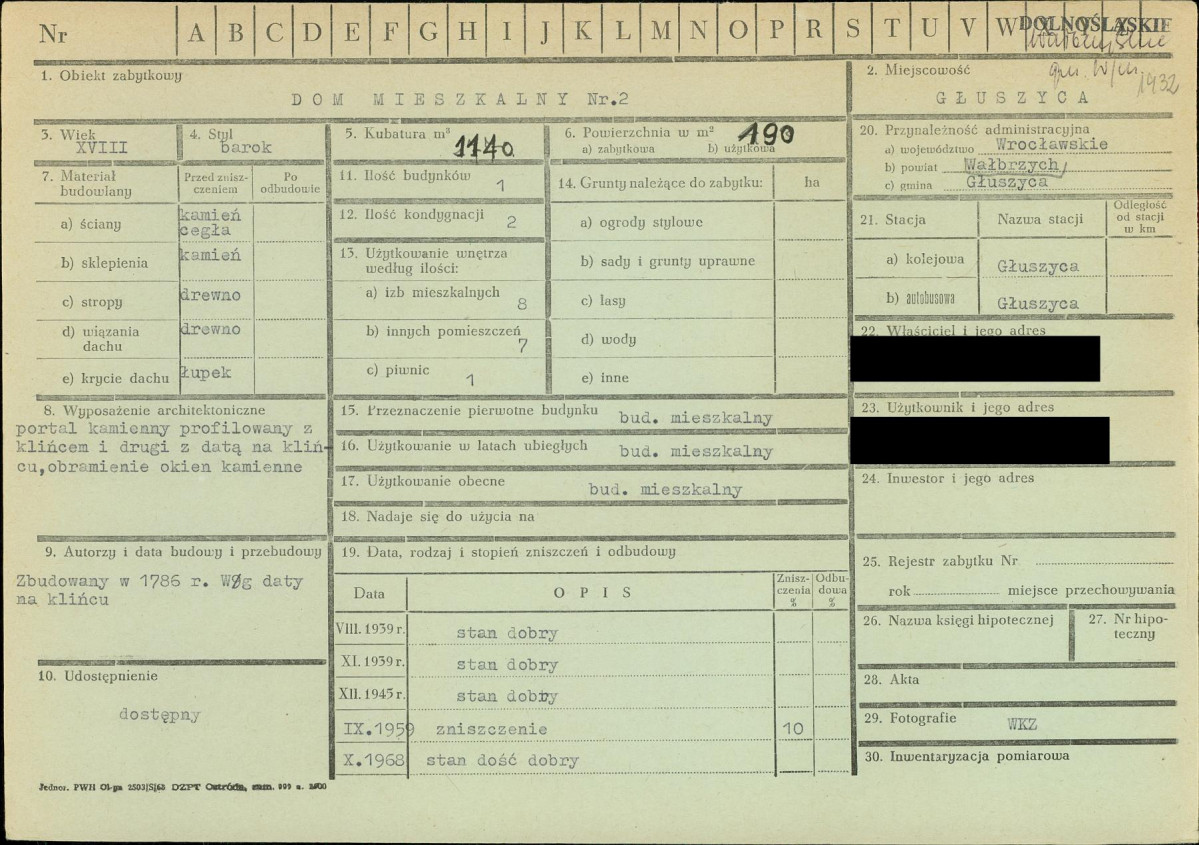 Nr A B C D E F G H I J K L M N O P R S T U V W X Y Z
DOLNOŚLĄSKIE
1932
1. Obiekt zabytkowy
DOM MIESZKALNY Nr.2
2. Miejscowość
GŁUSZYCA
3. Wiek
XVIII
4. Styl
barok
5. Kubatura m³
1140
6. Powierzchnia w m²
190
a) zabytkowa b) użytkowa
7. Materiał budowlany
Przed zniszczeniem
Po odbudowie
a) ściany kamień
cegła
b) sklepienia kamień
c) stropy drewno
d) wiązania dachu drewno
e) krycie dachu łupek
11. Ilość budynków 1
12. Ilość kondygnacji 2
13. Użytkowanie wnętrza według ilości:
a) izb mieszkalnych 8
b) innych pomieszczeń 7
c) piwnic 1
14. Grunty należące do zabytku: ha
a) ogrody stylowe
b) sady i grunty uprawne
c) lasy
d) wody
e) inne
20. Przynależność administracyjna
a) województwo Wrocławskie
b) powiat Wałbrzych
c) gmina Głuszyca
21. Stacja
Nazwa stacji
Odległość od stacji w km
a) kolejowa Głuszyca
b) autobusowa Głuszyca
22. Właściciel i jego adres
23. Użytkownik i jego adres
24. Inwestor i jego adres
8. Wyposażenie architektoniczne
portal kamienny profilowany z
klińcem i drugi z datą na kliń-
cu,obramienie okien kamienne
15. Przeznaczenie pierwotne budynku bud. mieszkalny
16. Użytkowanie w latach ubiegłych bud. mieszkalny
17. Użytkowanie obecne bud. mieszkalny
18. Nadaje się do użycia na
9. Autorzy i data budowy i przebudowy
Zbudowany w 1786 r. Wg daty
na klińcu
10. Udostępnienie
dostępny
19. Data, rodzaj i stopień zniszczeń i odbudowy
Data OPIS Zniszczenia % Odbudowa %
VIII. 1939 r. stan dobry
XI. 1939 r. stan dobry
XII. 1945 r. stan dobry
IX.1959 zniszczenie 10
X.1968 stan dość dobry
25. Rejestr zabytku Nr
rok miejsce przechowywania
26. Nazwa księgi hipotecznej
27. Nr hipoteczny
28. Akta
29. Fotografie WKZ
30. Inwentaryzacja pomiarowa
Jednor. PWH Ol-ga 2503/S/68 DZPT Ostróda